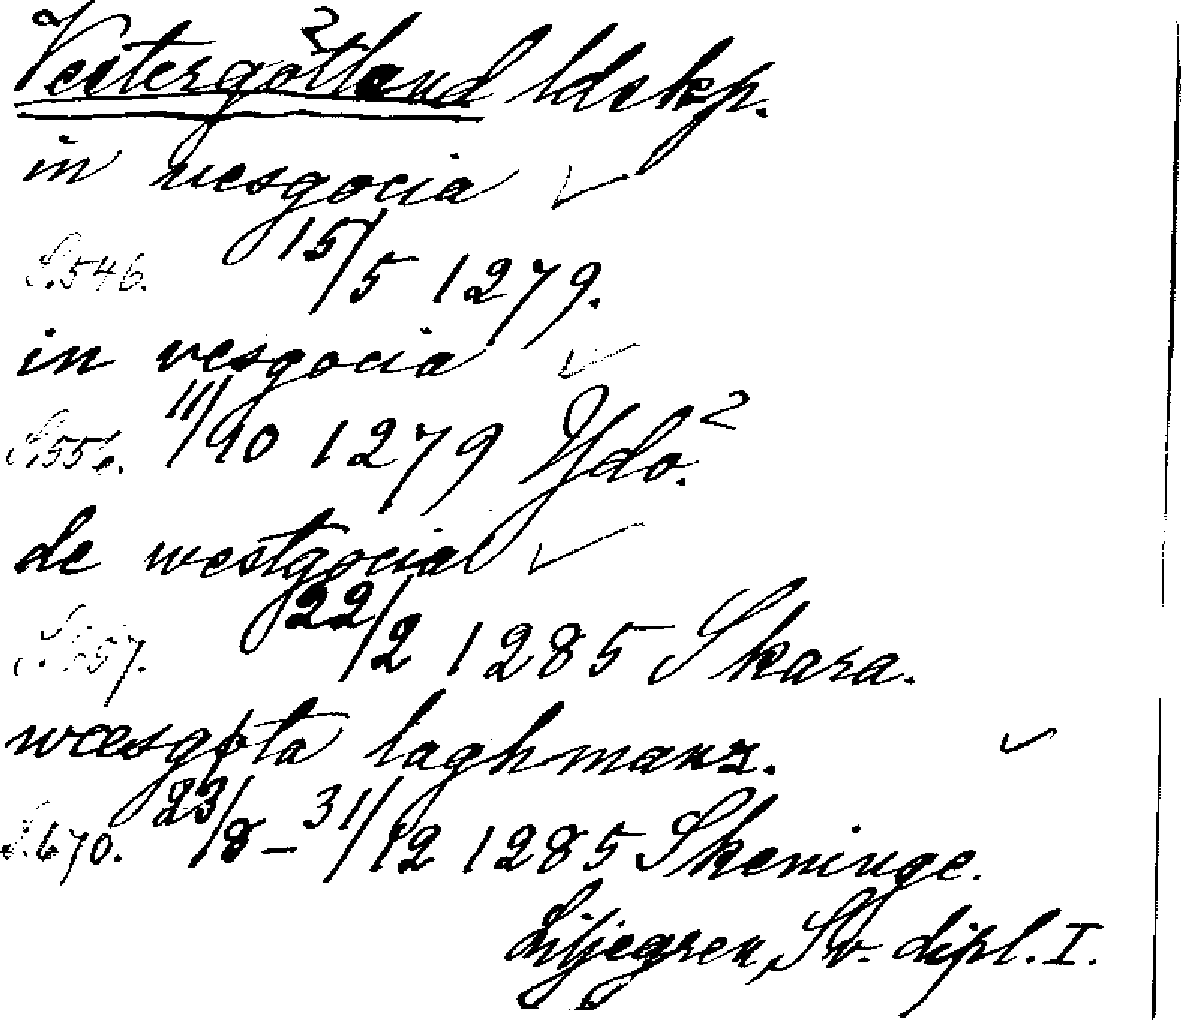 Vestergötland ldskp.
in vesgocia
S. 546. 15/5 1279.
in vesgocia
S. 556. 11/10 1279 Ydo.
de westgocia
S. 657. 22/2 1285 Skara.
wæsgøta laghmanz.
S. 670. 23/8 – 31/12 1285 Skeninge.
Liljegren, Sv. dipl. I.